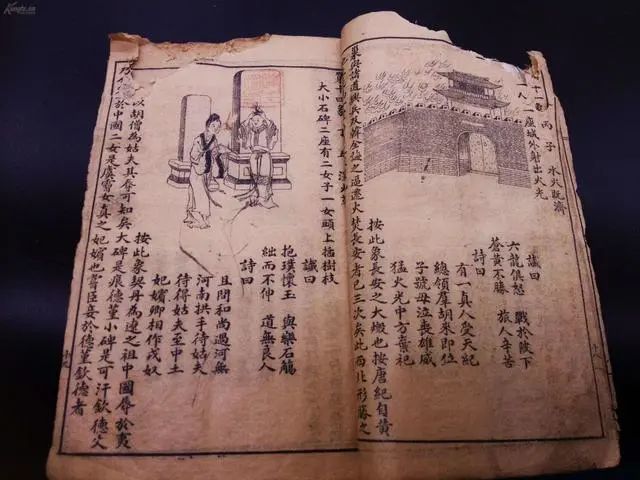 十一
丙子 水火既濟
座城外射出火光
讖曰
六龍俱怒 戰於陂下
蒼黃不勝 旅人辛苦
詩曰
有一真人受天紀
總領羣胡來即位
子號母泣喪雄威
猛火光中方喪祀
按此象長安之大也按唐紀自黃
巢與諸道興兵及韓全誨之逼遷火焚長安者已三次矣此西北形勝之
十四
大小石碑二座有二女子一女頭上插樹枝
讖曰
抱璞懷玉 與樂石
絀而不伸 道無良人
詩曰
且問和尚過河無
河南拱手待姑夫
待得姑夫至中土
妃嬪卿相作戎奴
按此象契丹為遼之祖中國辱於夷
以胡僧為姑夫其辱可知矣大碑是痕德堇小碑是可汗欽德父
於中國二女是虞雪女真之妃嬪也臣妾於德堇欽德者